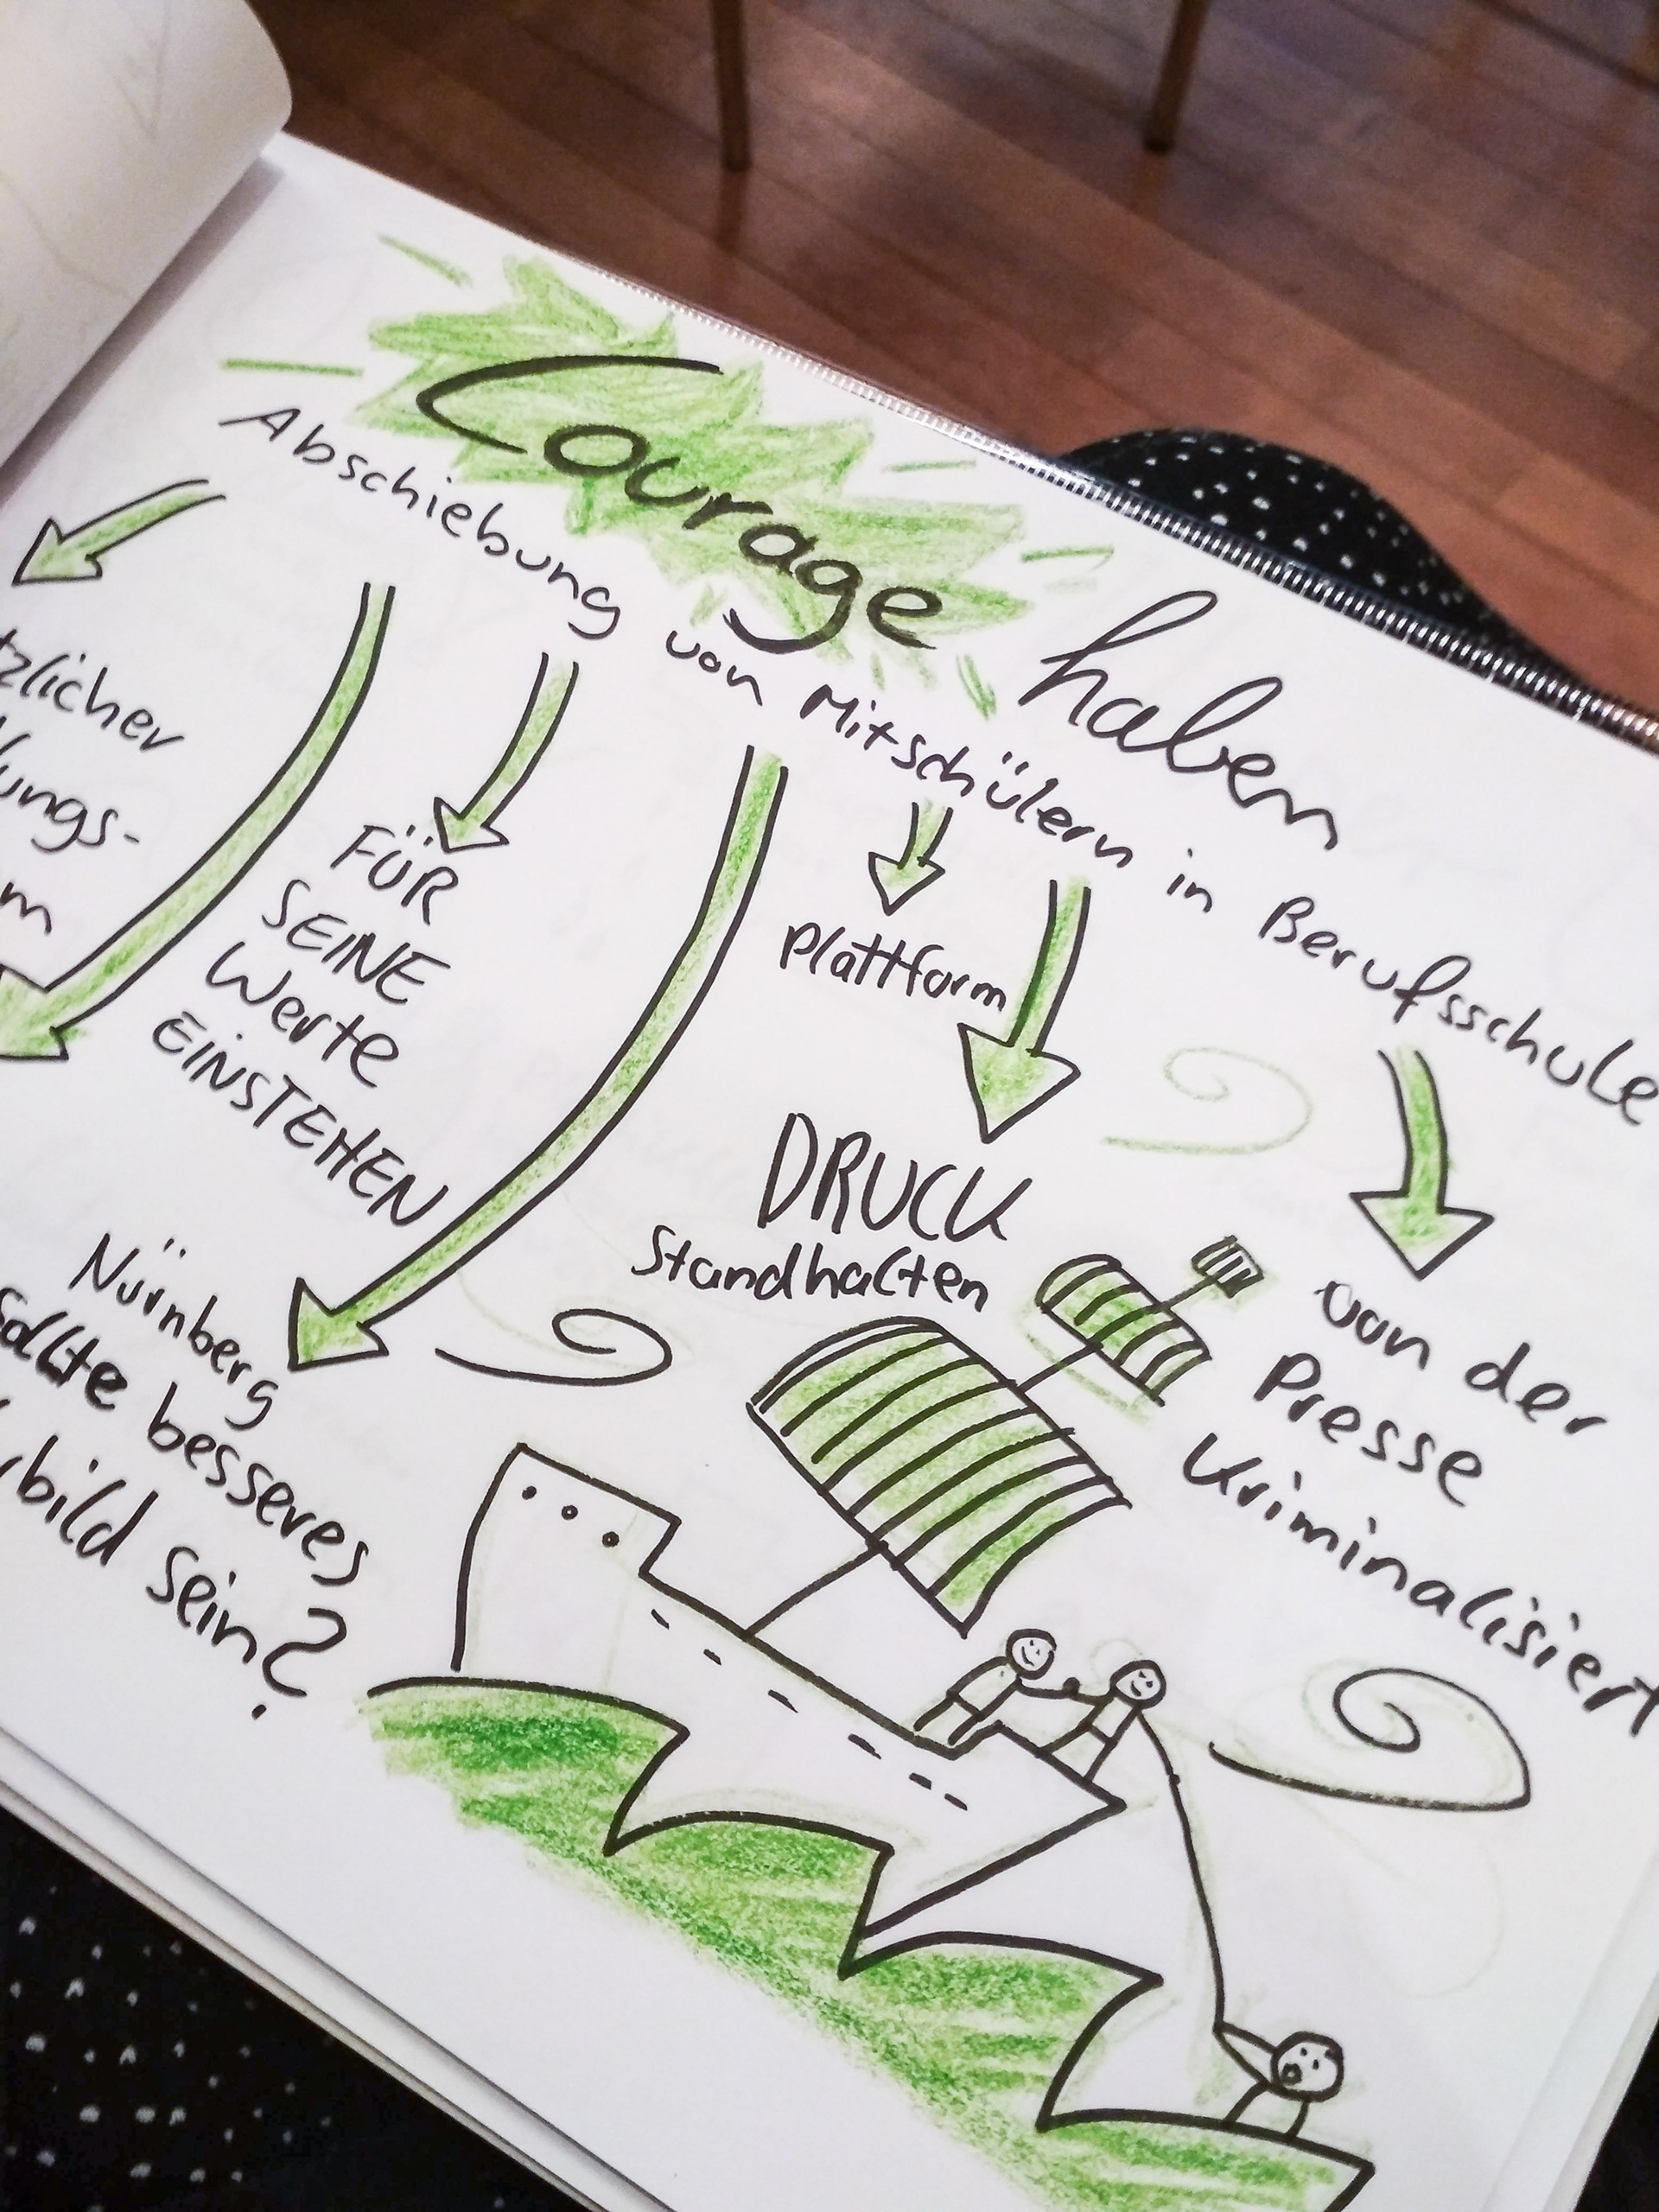 Courage haben
Abschiebung von Mitschülern in Berufsschule
tzlicher
ungs-
m
FÜR
SEINE
Werte
EINSTEHEN
Plattform
DRUCK
Standhalten
von der
Presse
Kriminalisiert
Nürnberg
sollte besseres
bild sein?